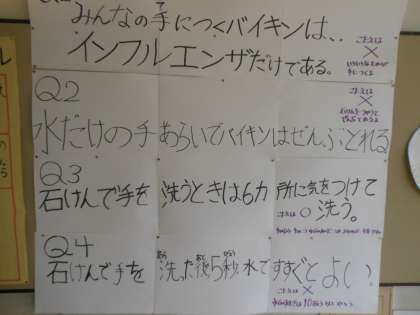 みんなの手につくバイキンは、、
インフルエンザだけである。
こたえは
×
Q2
こたえは
×
水だけの手あらいでバイキンはぜんぶとれる
Q3
石けんで手を洗うときは6カ所に気をつけて
洗う。
こたえは ○
Q4
石けんで手を洗った後5秒水ですすぐとよい
あら
あと
びょう
こたえは
×